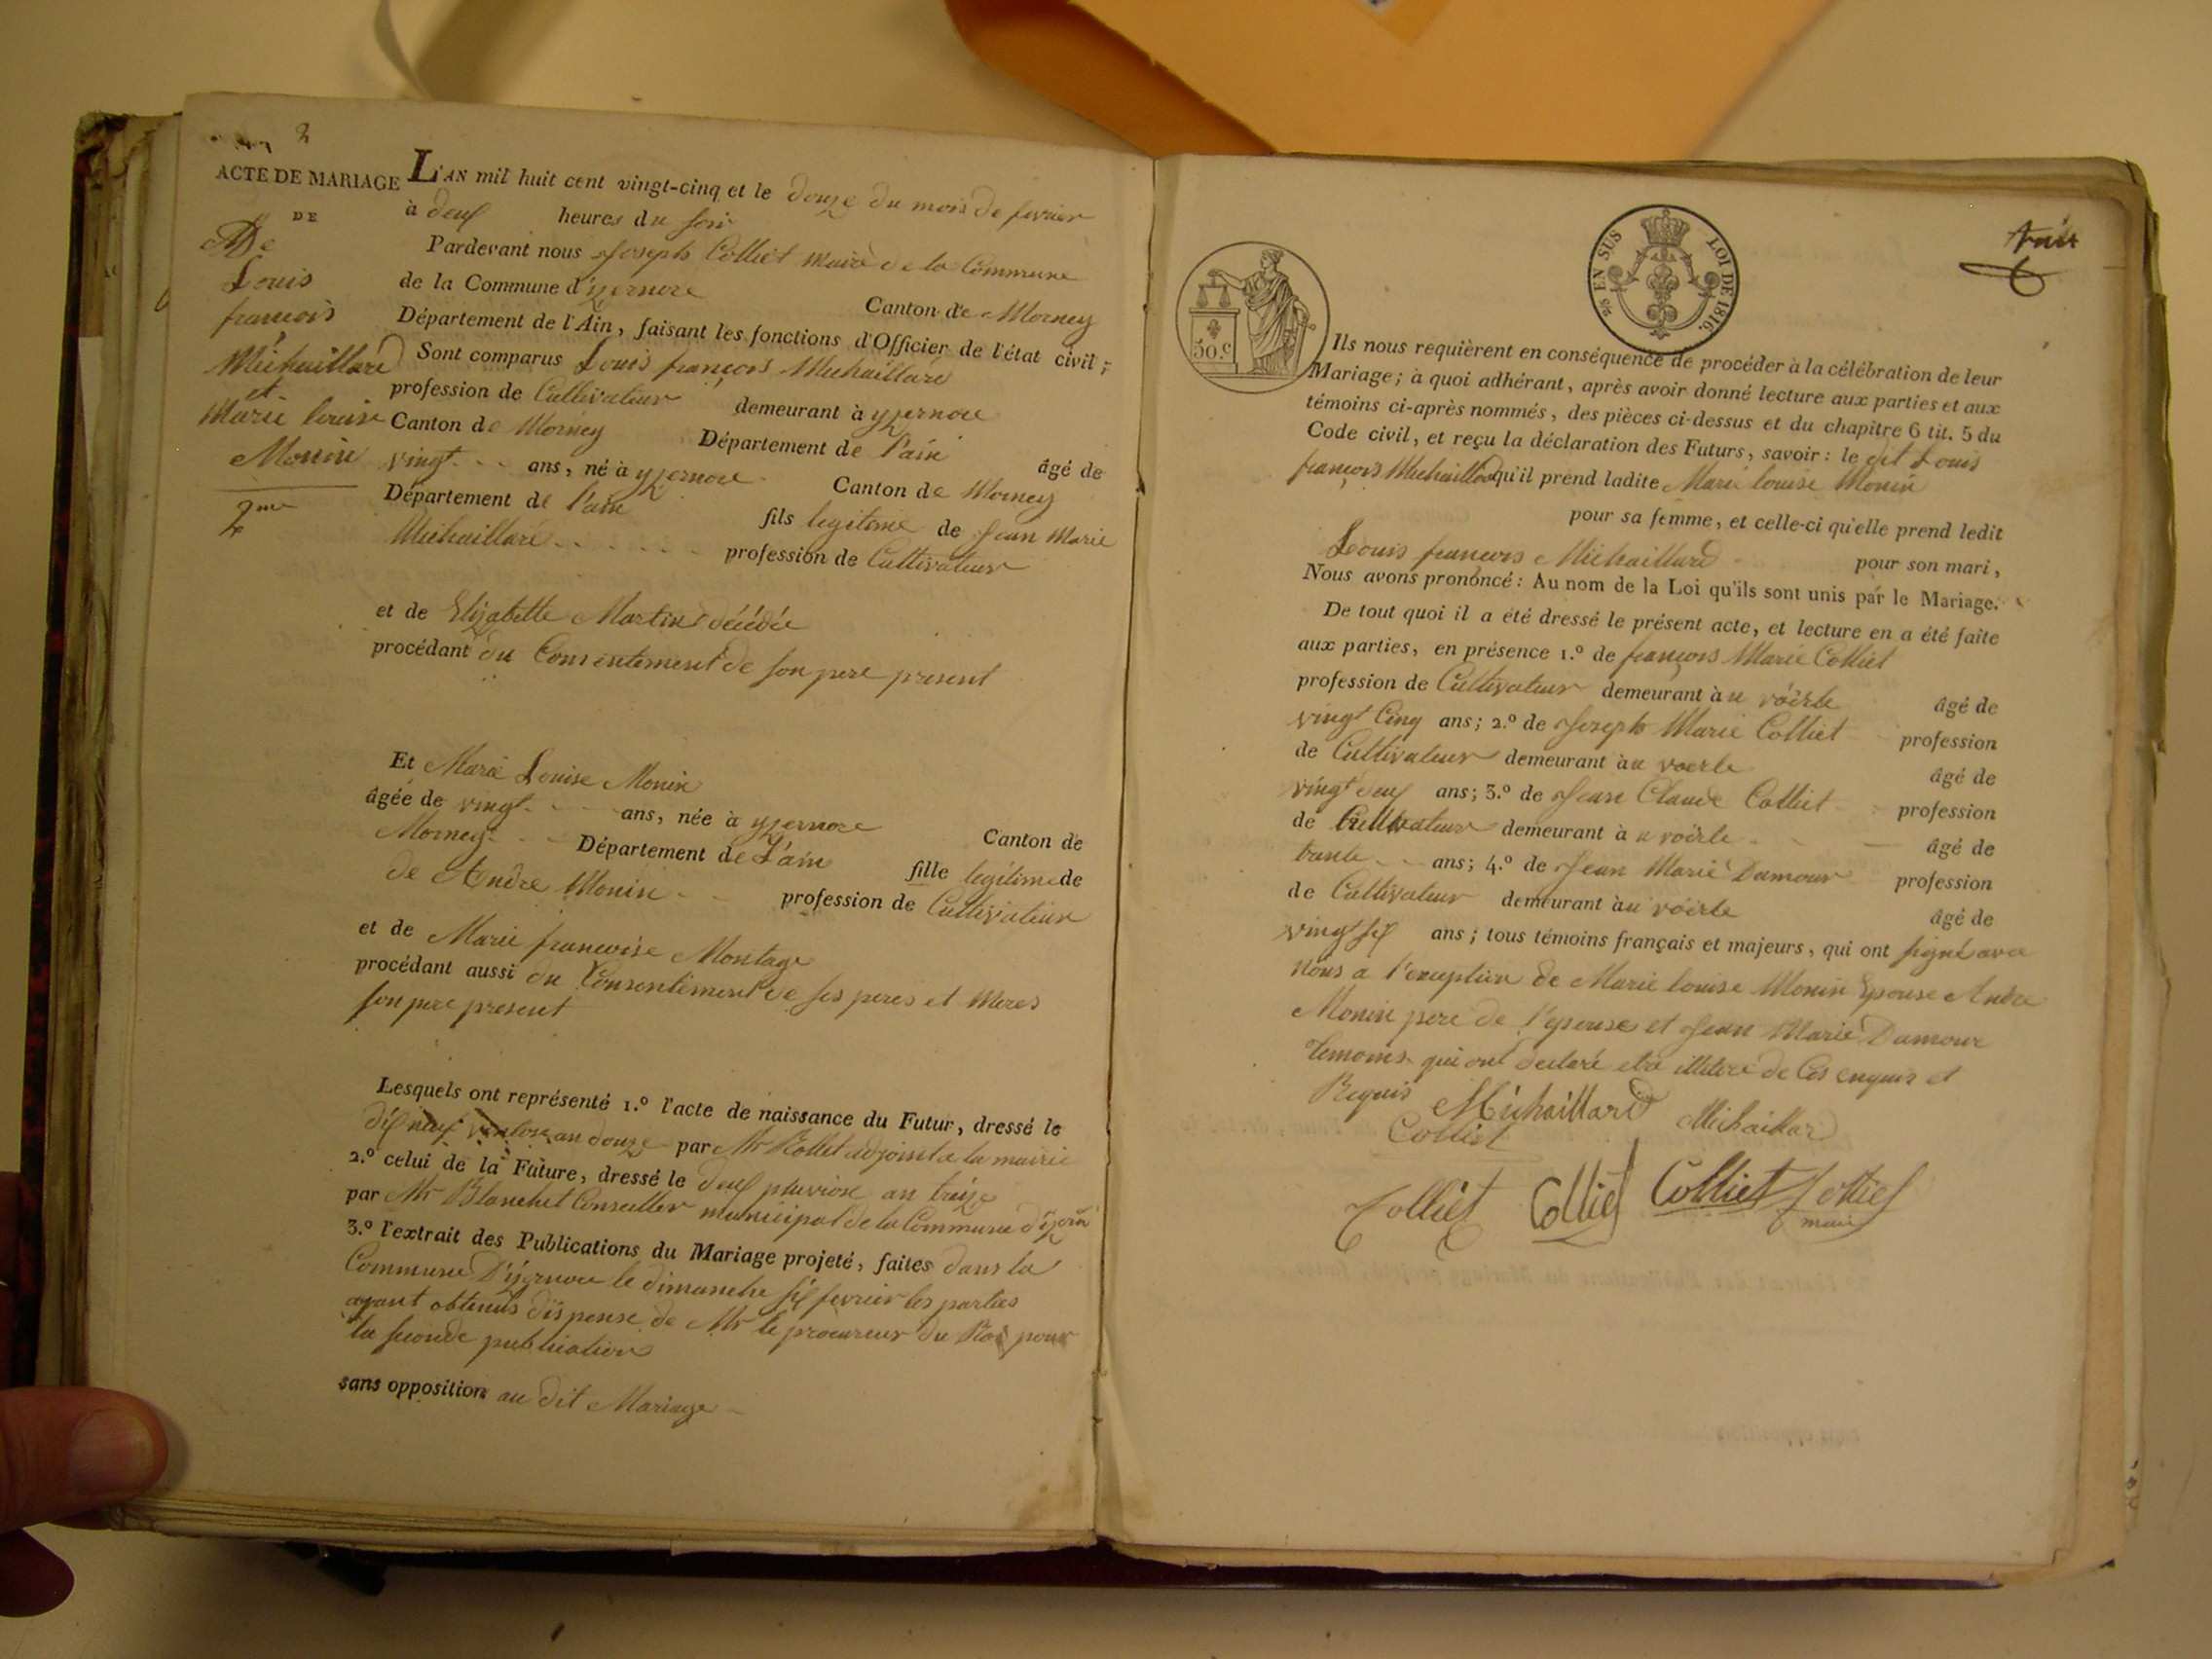 2
ACTE DE MARIAGE
DE
De
Louis
françois
Michaillard
et
Marie louise
Monin
2me
L'AN mil huit cent vingt-cinq et le douze du mois de fevrier
à deux heures du soir
Pardevant nous Joseph Colliet maire de la Commune
de la Commune d'yzernore Canton de Mornay
Département de l'Ain, faisant les fonctions d'Officier de l'état civil;
Sont comparus Louis françois Michaillard
profession de Cultivateur demeurant à yzernore
Canton de Mornay Département de l'ain âgé de
vingt ans, né à yzernore Canton de Mornay
Département de l'ain fils legitime de Jean Marie
Michaillard profession de Cultivateur
et de Elizabette Martin décédée
procédant du Consentement de son pere present
Et Marie Louise Monin
âgée de vingt ans, née à yzernore Canton de
Mornay Département de L'ain fille legitime de
de Andre Monin profession de Cultivateur
et de Marie francoise Montage
procédant aussi du Consentement de ses peres et meres
son pere present
Lesquels ont représenté 1.º l'acte de naissance du Futur, dressé le
dix neuf ventose an douze par Mr Rollet adjoint a la mairie
2.º celui de la Future, dressé le deux pluviose an treize
par Mr Blanchet Conseiller municipal de la Commune
3.º l'extrait des Publications du Mariage projeté, faites dans la
Commune D'yzernore le dimanche six fevrier les parties
ayant obtenus dispense de Mr le procureur du Roi pour
la seconde publication
sans opposition au dit Mariage
50.C
EN SUS LOI DE 1816.
Ils nous requièrent en conséquence de procéder à la célébration de leur
Mariage; à quoi adhérant, après avoir donné lecture aux parties et aux
témoins ci-après nommés, des pièces ci-dessus et du chapitre 6 tit. 5 du
Code civil, et reçu la déclaration des Futurs, savoir: le dit Louis
françois Michaillard qu'il prend ladite Marie louise Monin
pour sa femme, et celle-ci qu'elle prend ledit
Louis francois Michaillard pour son mari,
Nous avons prononcé: Au nom de la Loi qu'ils sont unis par le Mariage.
De tout quoi il a été dressé le présent acte, et lecture en a été faite
aux parties, en présence 1.º de françois Marie Colliet
profession de Cultivateur demeurant à u voërle âgé de
vingt Cinq ans; 2.º de Joseph Marie Colliet profession
de Cultivateur demeurant à u voerle âgé de
vingt deux ans; 3.º de Jean Claude Colliet profession
de Cultivateur demeurant à u voërle âgé de
trente ans; 4.º de Jean Marie Damour profession
de Cultivateur demeurant à u voërle âgé de
vingt six ans; tous témoins français et majeurs, qui ont signé avec
Nous a l'exception de Marie louise Monin Epouse Andre
Monin pere de l'epouse et Jean Marie Damour
temoins qui ont declaré etre illitere de Ces enquis et
Requis
Michaillard Michaillard
Colliet
Colliet Colliet Colliet Colliet
maire